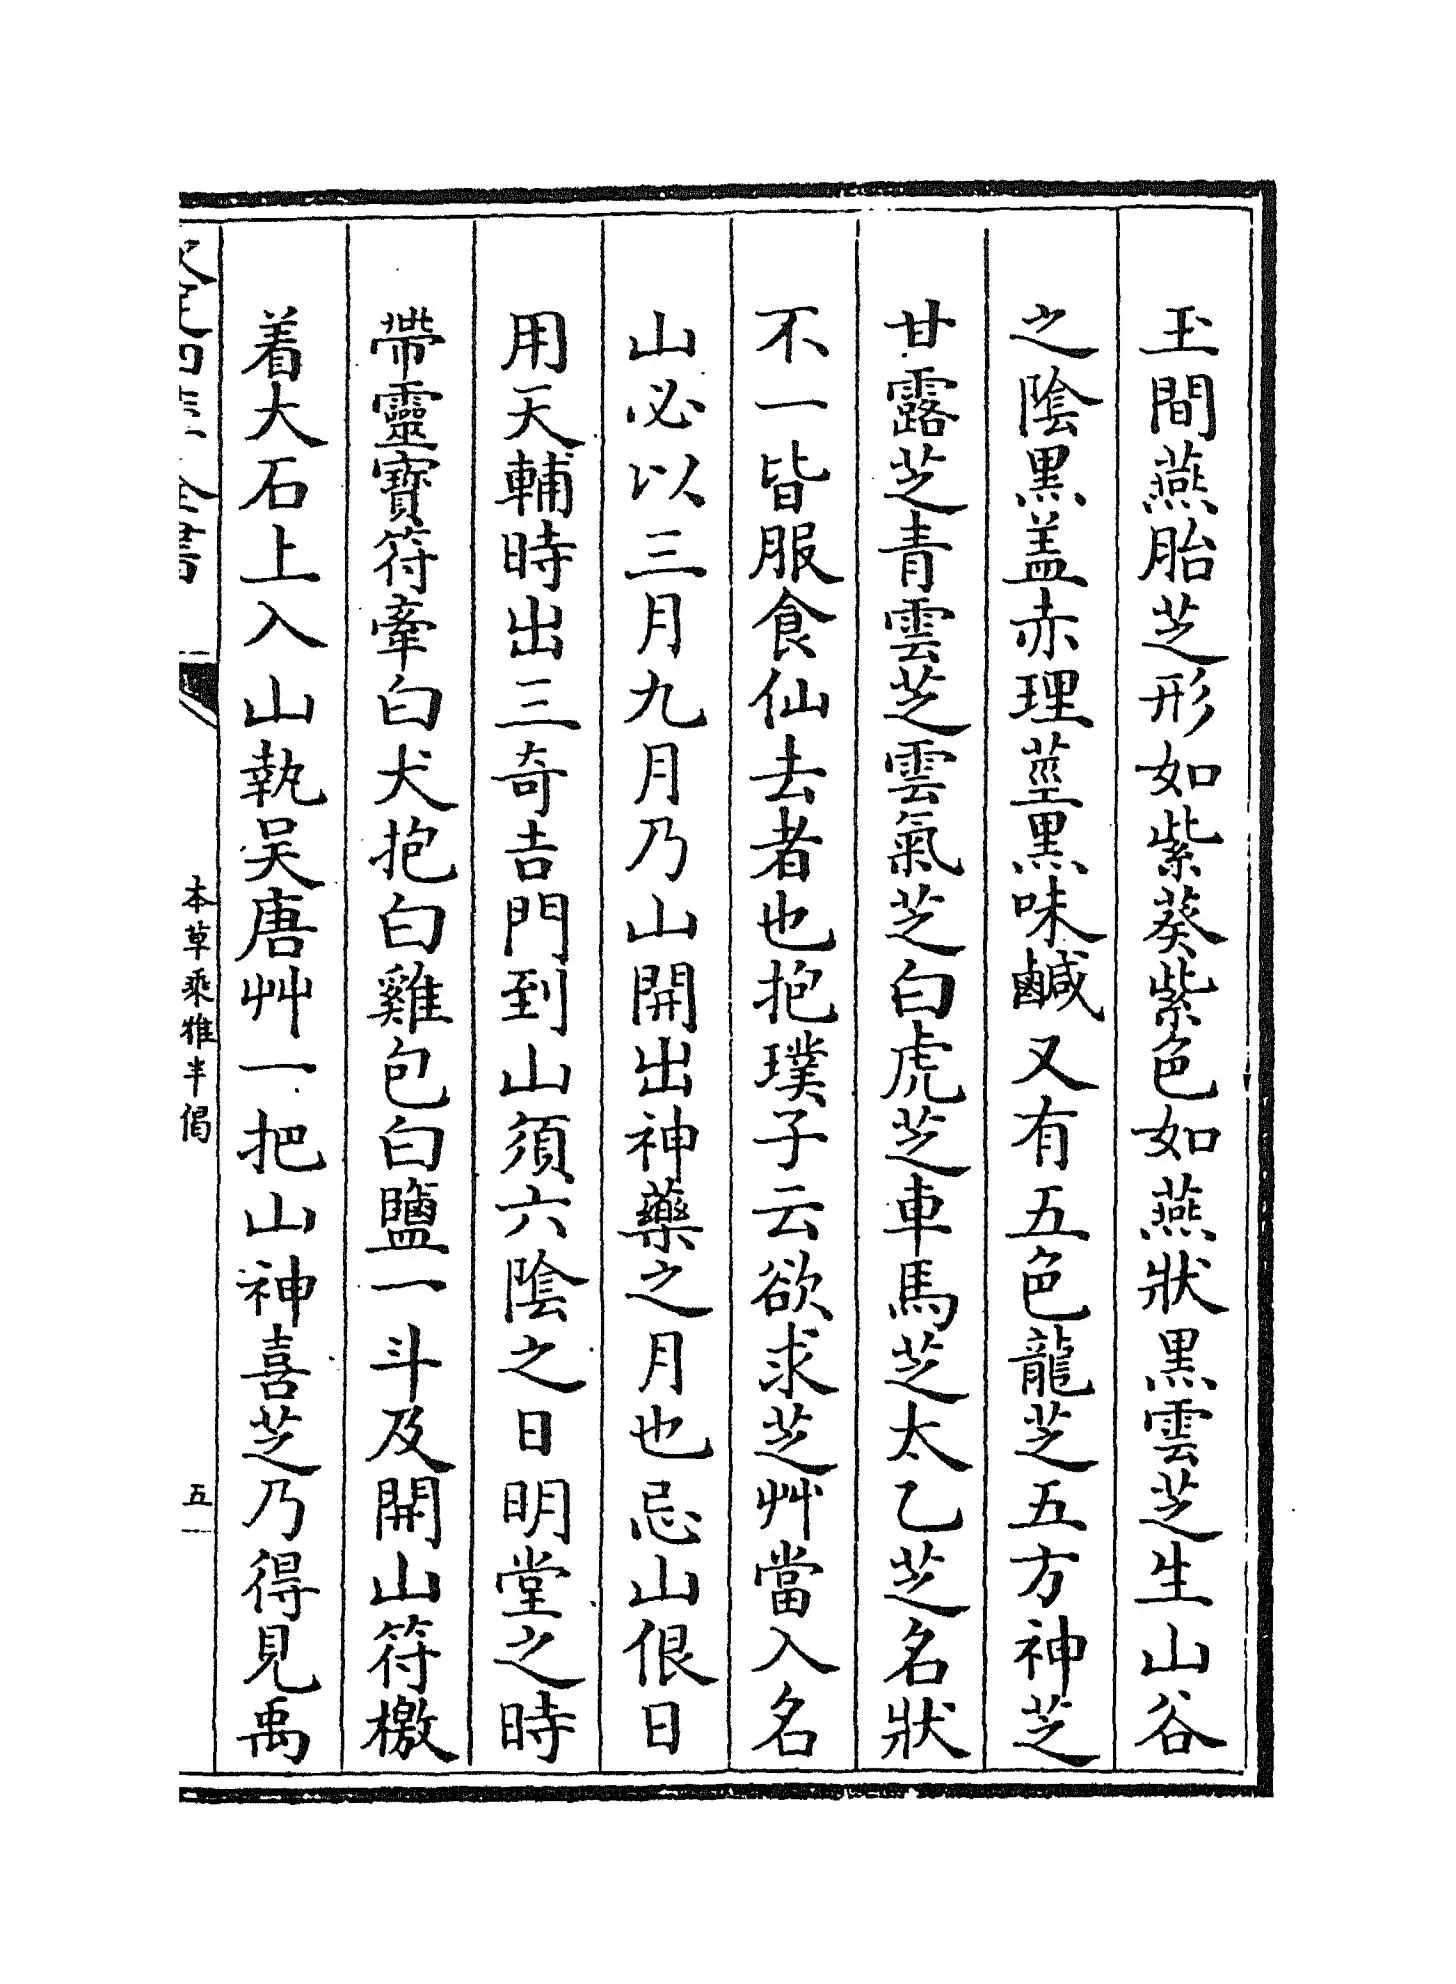 玉間燕胎芝形如紫葵紫色如燕狀黑雲芝生山谷
之陰黑盖赤理莖黑味鹹又有五色龍芝五方神芝
甘露芝青雲芝雲氣芝白虎芝車馬芝太乙芝名狀
不一皆服食仙去者也抱璞子云欲求芝艸當入名
山必以三月九月乃山開出神藥之月也忌山佷日
用天輔時出三奇吉門到山須六陰之日明堂之時
帶靈寶符牽白犬抱白雞包白鹽一斗及開山符檄
着大石上入山執吴唐艸一把山神喜芝乃得見禹
欽定四庫全書
本草乘雅半偈
五